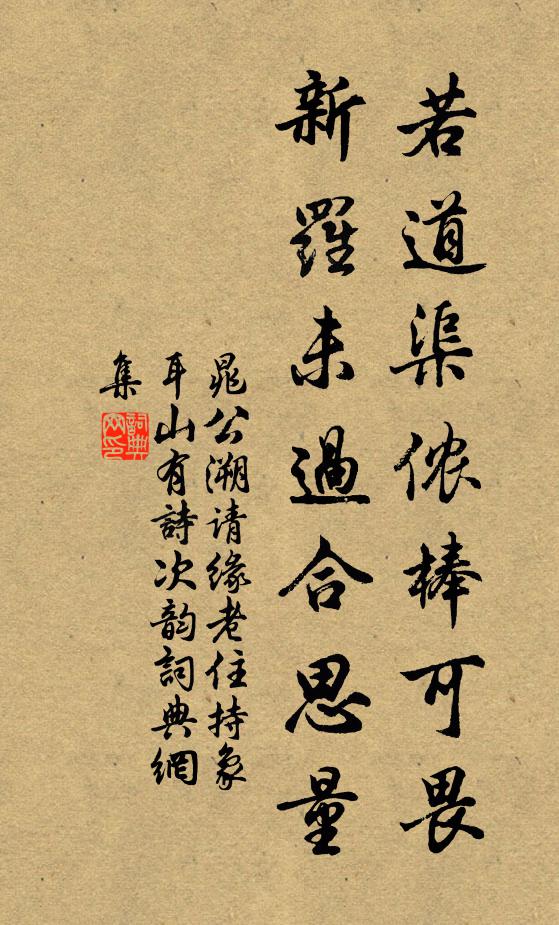 若道渠侬棒可畏
新羅未過合思量
晁公溯请缘老住持象
耳山有詩次韵詞典網
集
詞典网印